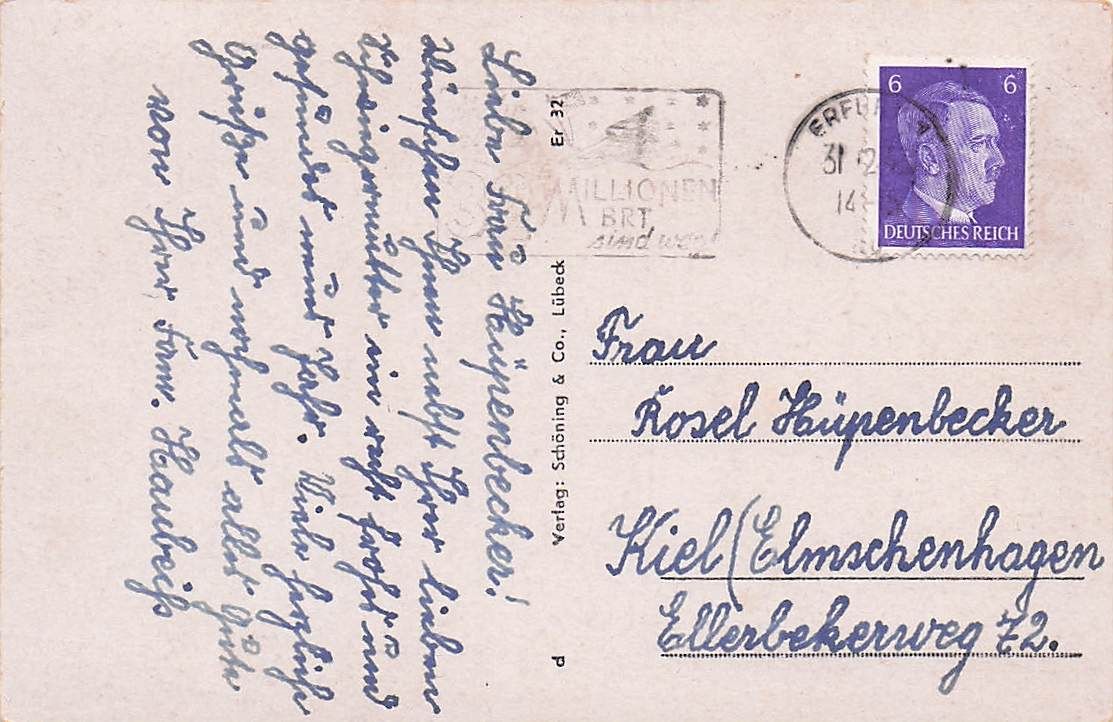 Liebe Frau Hüpenbecker!
Wünschen Ihnen nebst Ihrer lieben
Schwiegermutter ein recht frohes und
gesundes neues Jahr. Viele herzliche
Grüße und nochmals alles Gute
von Ihrer Fam. Haubeiß
Er 32
Verlag: Schöning & Co., Lübeck
d
MILLIONEN
BRT
sind weg!
ERFU
31 12
14
6 6
DEUTSCHES REICH
Frau
Rosel Hüpenbecker
Kiel (Elmschenhagen
Ellerbekerweg 72.